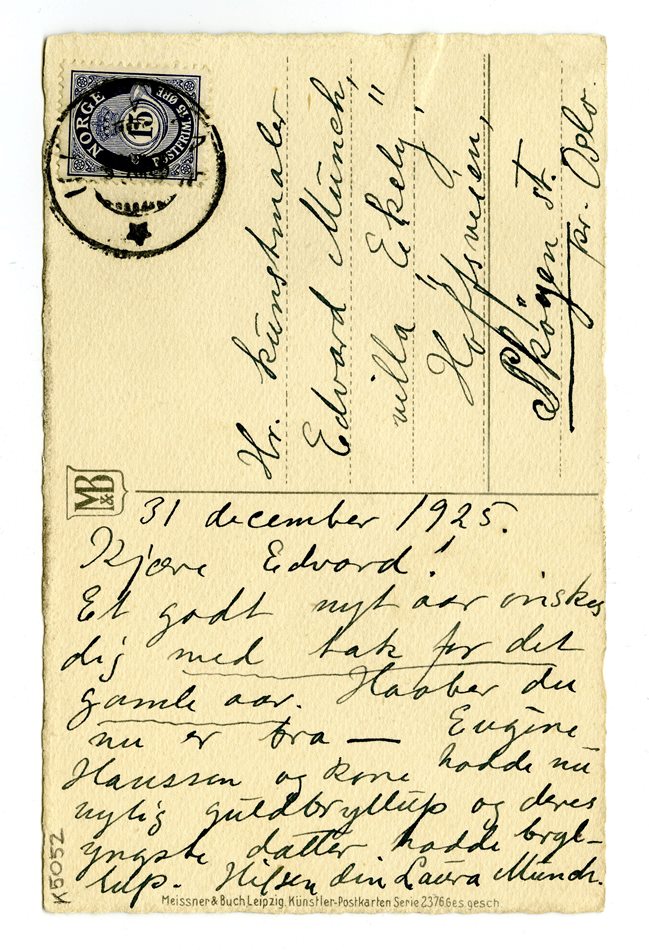 NORGE
15
POSTFRIM. 15 ØRE
Hr. kunstmaler
Edvard Munch,
villa "Ekely",
Hoffsveien,
Skøyen st.
pr. Oslo.
M&B
31 december 1925.
Kjære Edvard!
Et godt nyt aar ønskes
dig med tak for det
gamle aar. Haaber du
nu er bra — Eugine
Hanssen og kone hadde nu
nylig guldbryllup og deres
yngste datter hadde bryl-
lup. Hilsen din Laura Munch.
K5052
Meissner & Buch, Leipzig. Künstler-Postkarten Serie 2376. Ges. gesch.